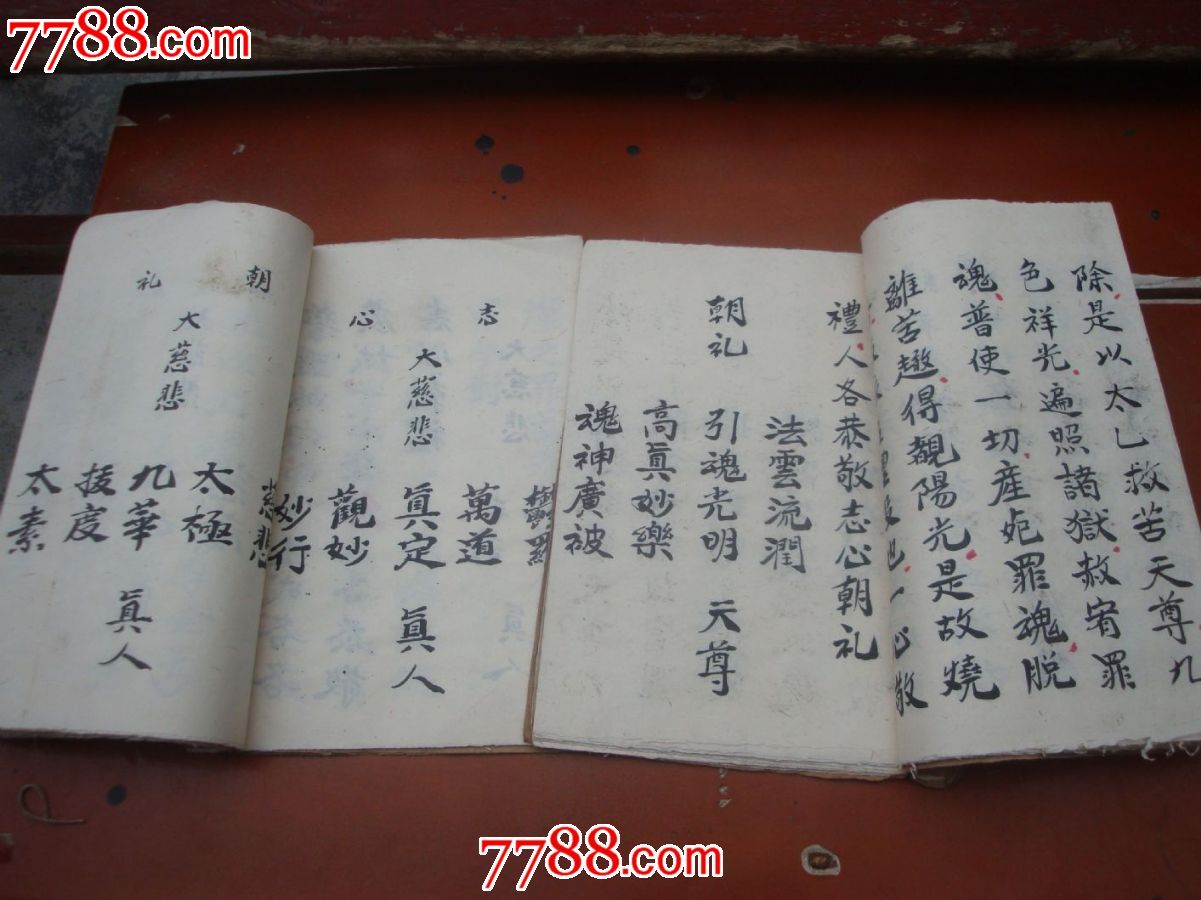 7788.com
除是以太乙救苦天尊九
色祥光遍照諸獄赦宥罪
魂普使一切產死罪魂脱
離苦趣得覩陽光是故燒
也一心敬
禮人各恭敬志心朝礼
法雲流潤
朝礼 引魂光明 天尊
高眞妙樂
魂神廣被
志
萬道
大慈悲 眞定 眞人
心 觀妙
妙行
慈悲
朝
太極
大慈悲 九華 眞人
礼 技度
太素
7788.com